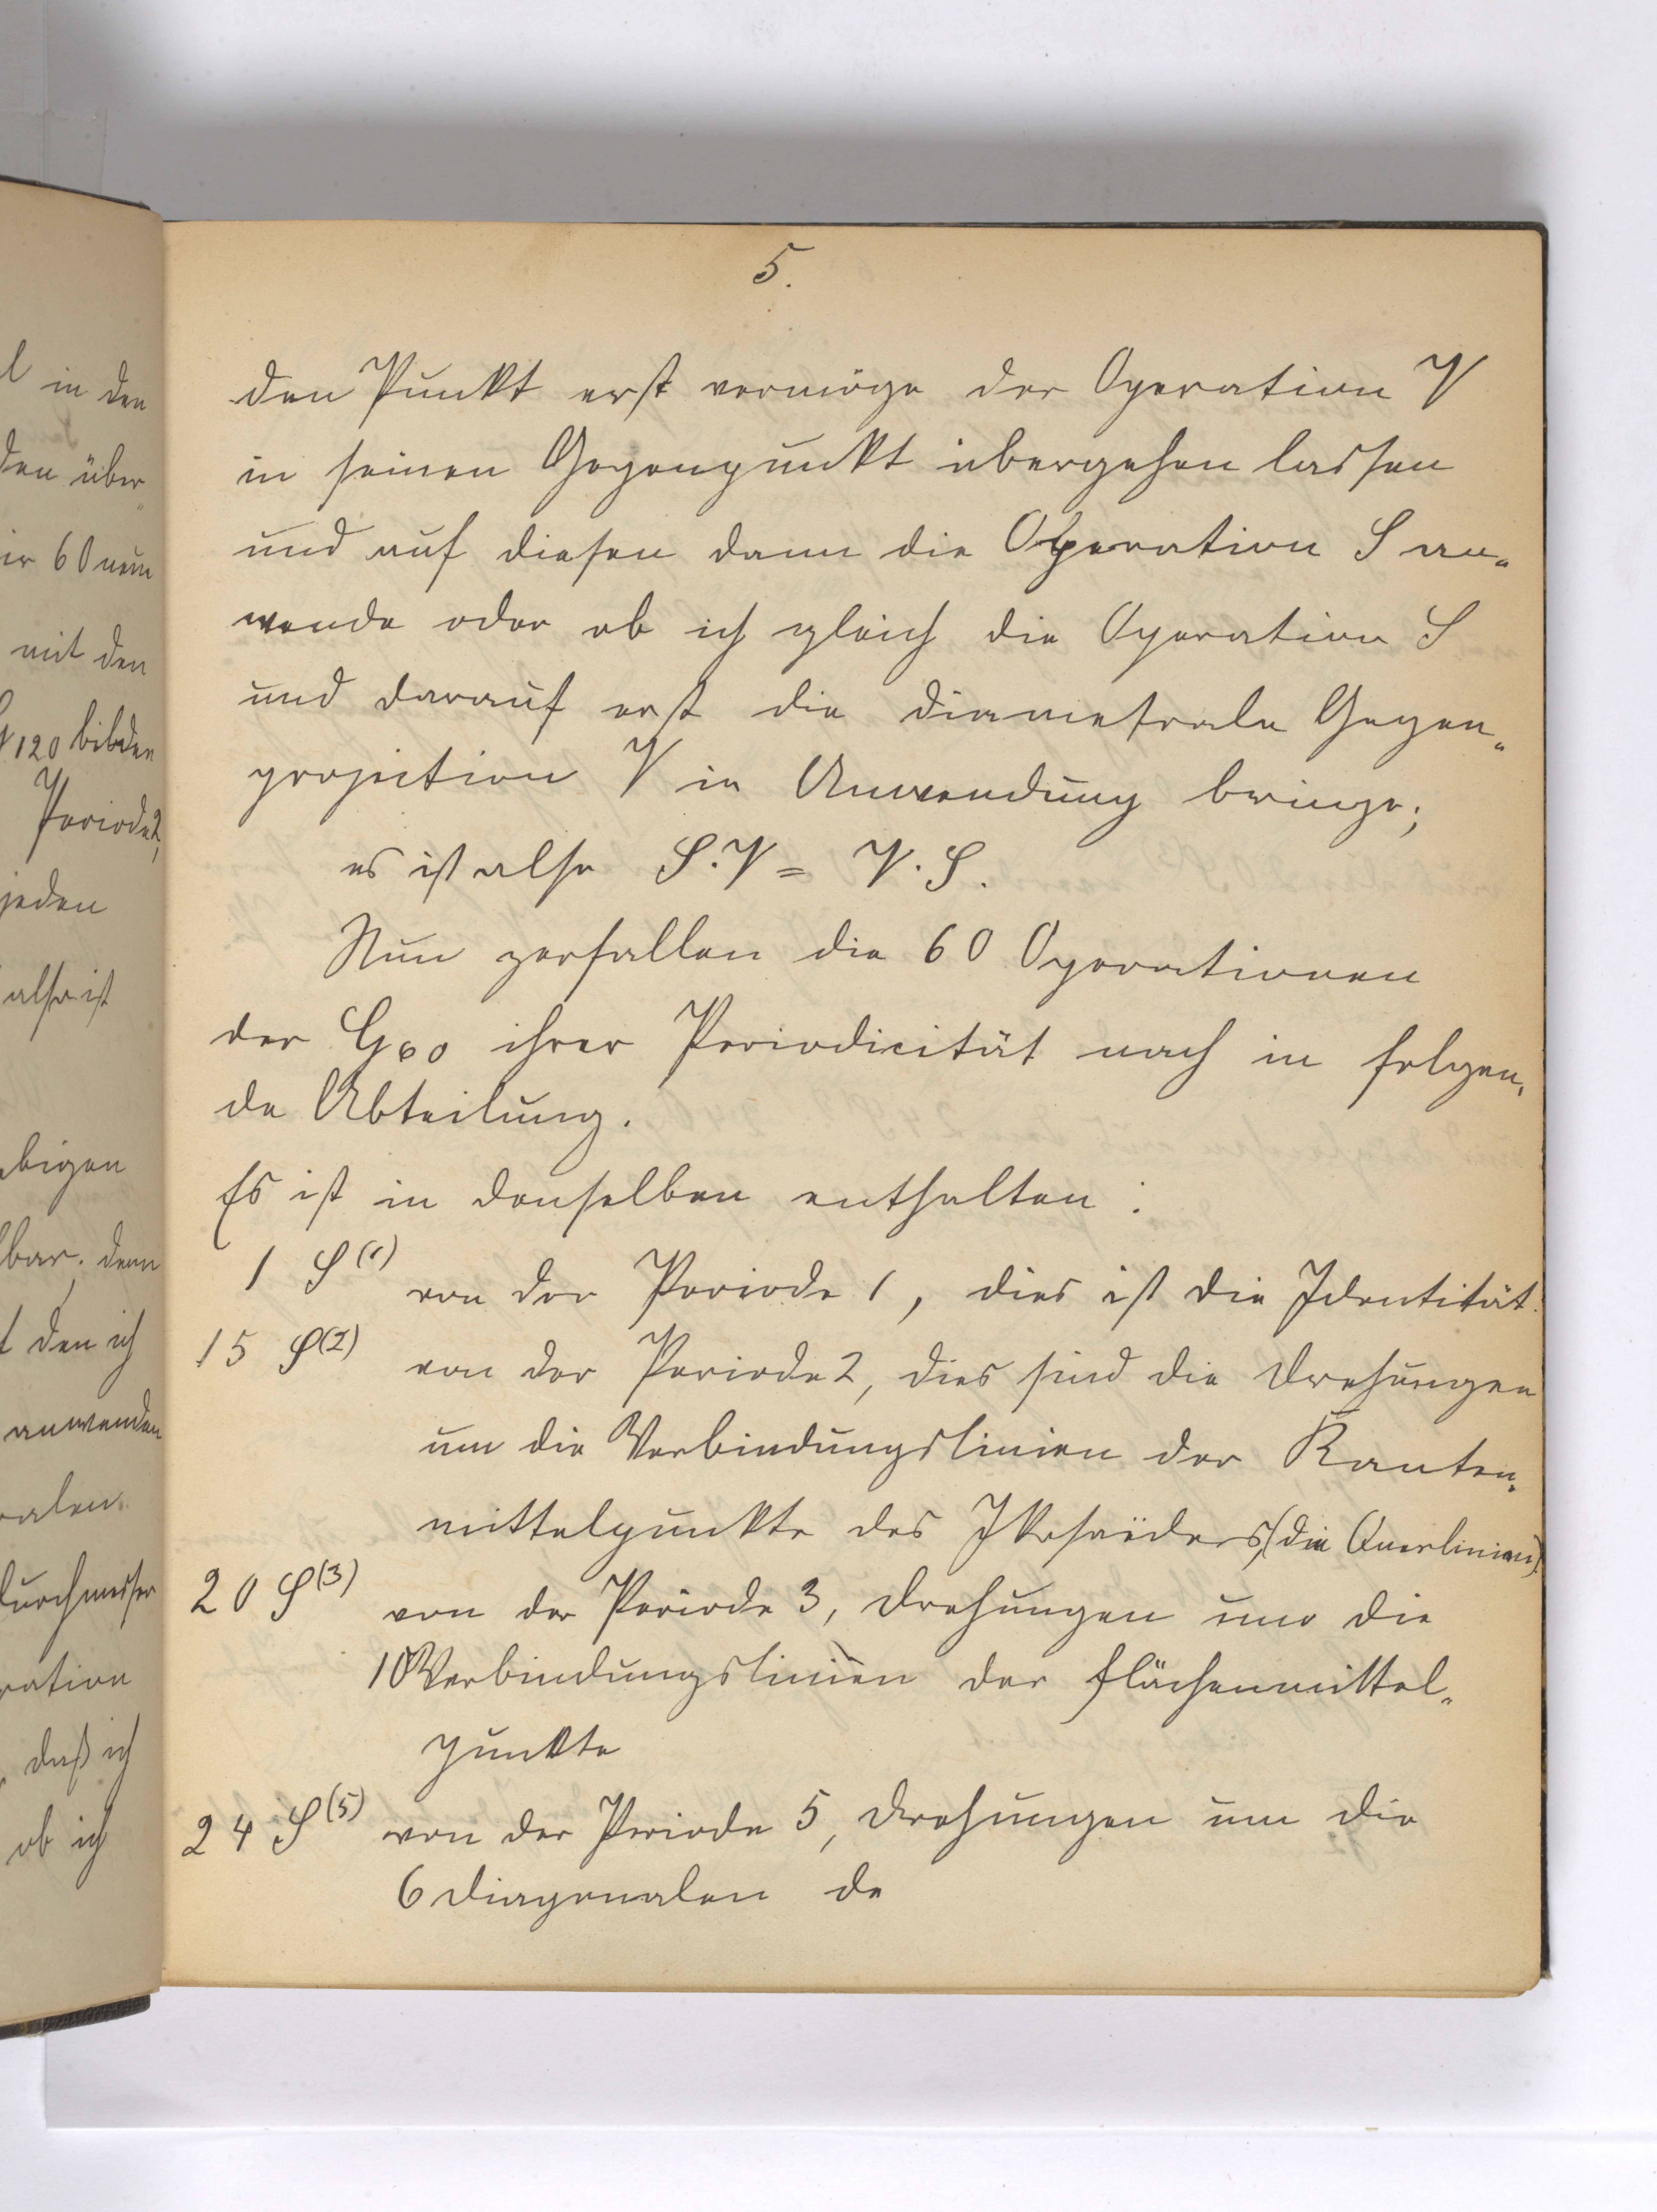 5.
den Punkt erst vermöge der Operation V
in seinen Gegenpunkt übergehen lassen
und auf diesen dann die Operation S an-
wende oder ob ich gleich die Operation S
und darauf erst die diametrale Gegen-
projection V in Anwendung bringe;
es ist also S.V = V.S.
Nun zerfallen die 60 Operationen
der G60 ihrer Periodicität nach in folgen-
de Abteilung.
Es ist in denselben enthalten:
1 S(1) von der Periode 1, dies ist die Identität.
15 S(2) von der Periode 2, dies sind die Drehungen
um die Verbindungslinien der Kanten-
mittelpunkte des Ikosaëders, (die Querlinien).
20 S(3) von der Periode 3, Drehungen um die
10 Verbindungslinien der Flächenmittel-
punkte
24 S(5) von der Periode 5, Drehungen um die
6 Diagonalen de
l in den
den über-
ir 60 neue
mit den
G120 bilden
Periode 2,
jeden
also ist
bigen
bar; denn
t den ich
anwenden
ralen
durchmesser
ration
, daß ich
ob ich